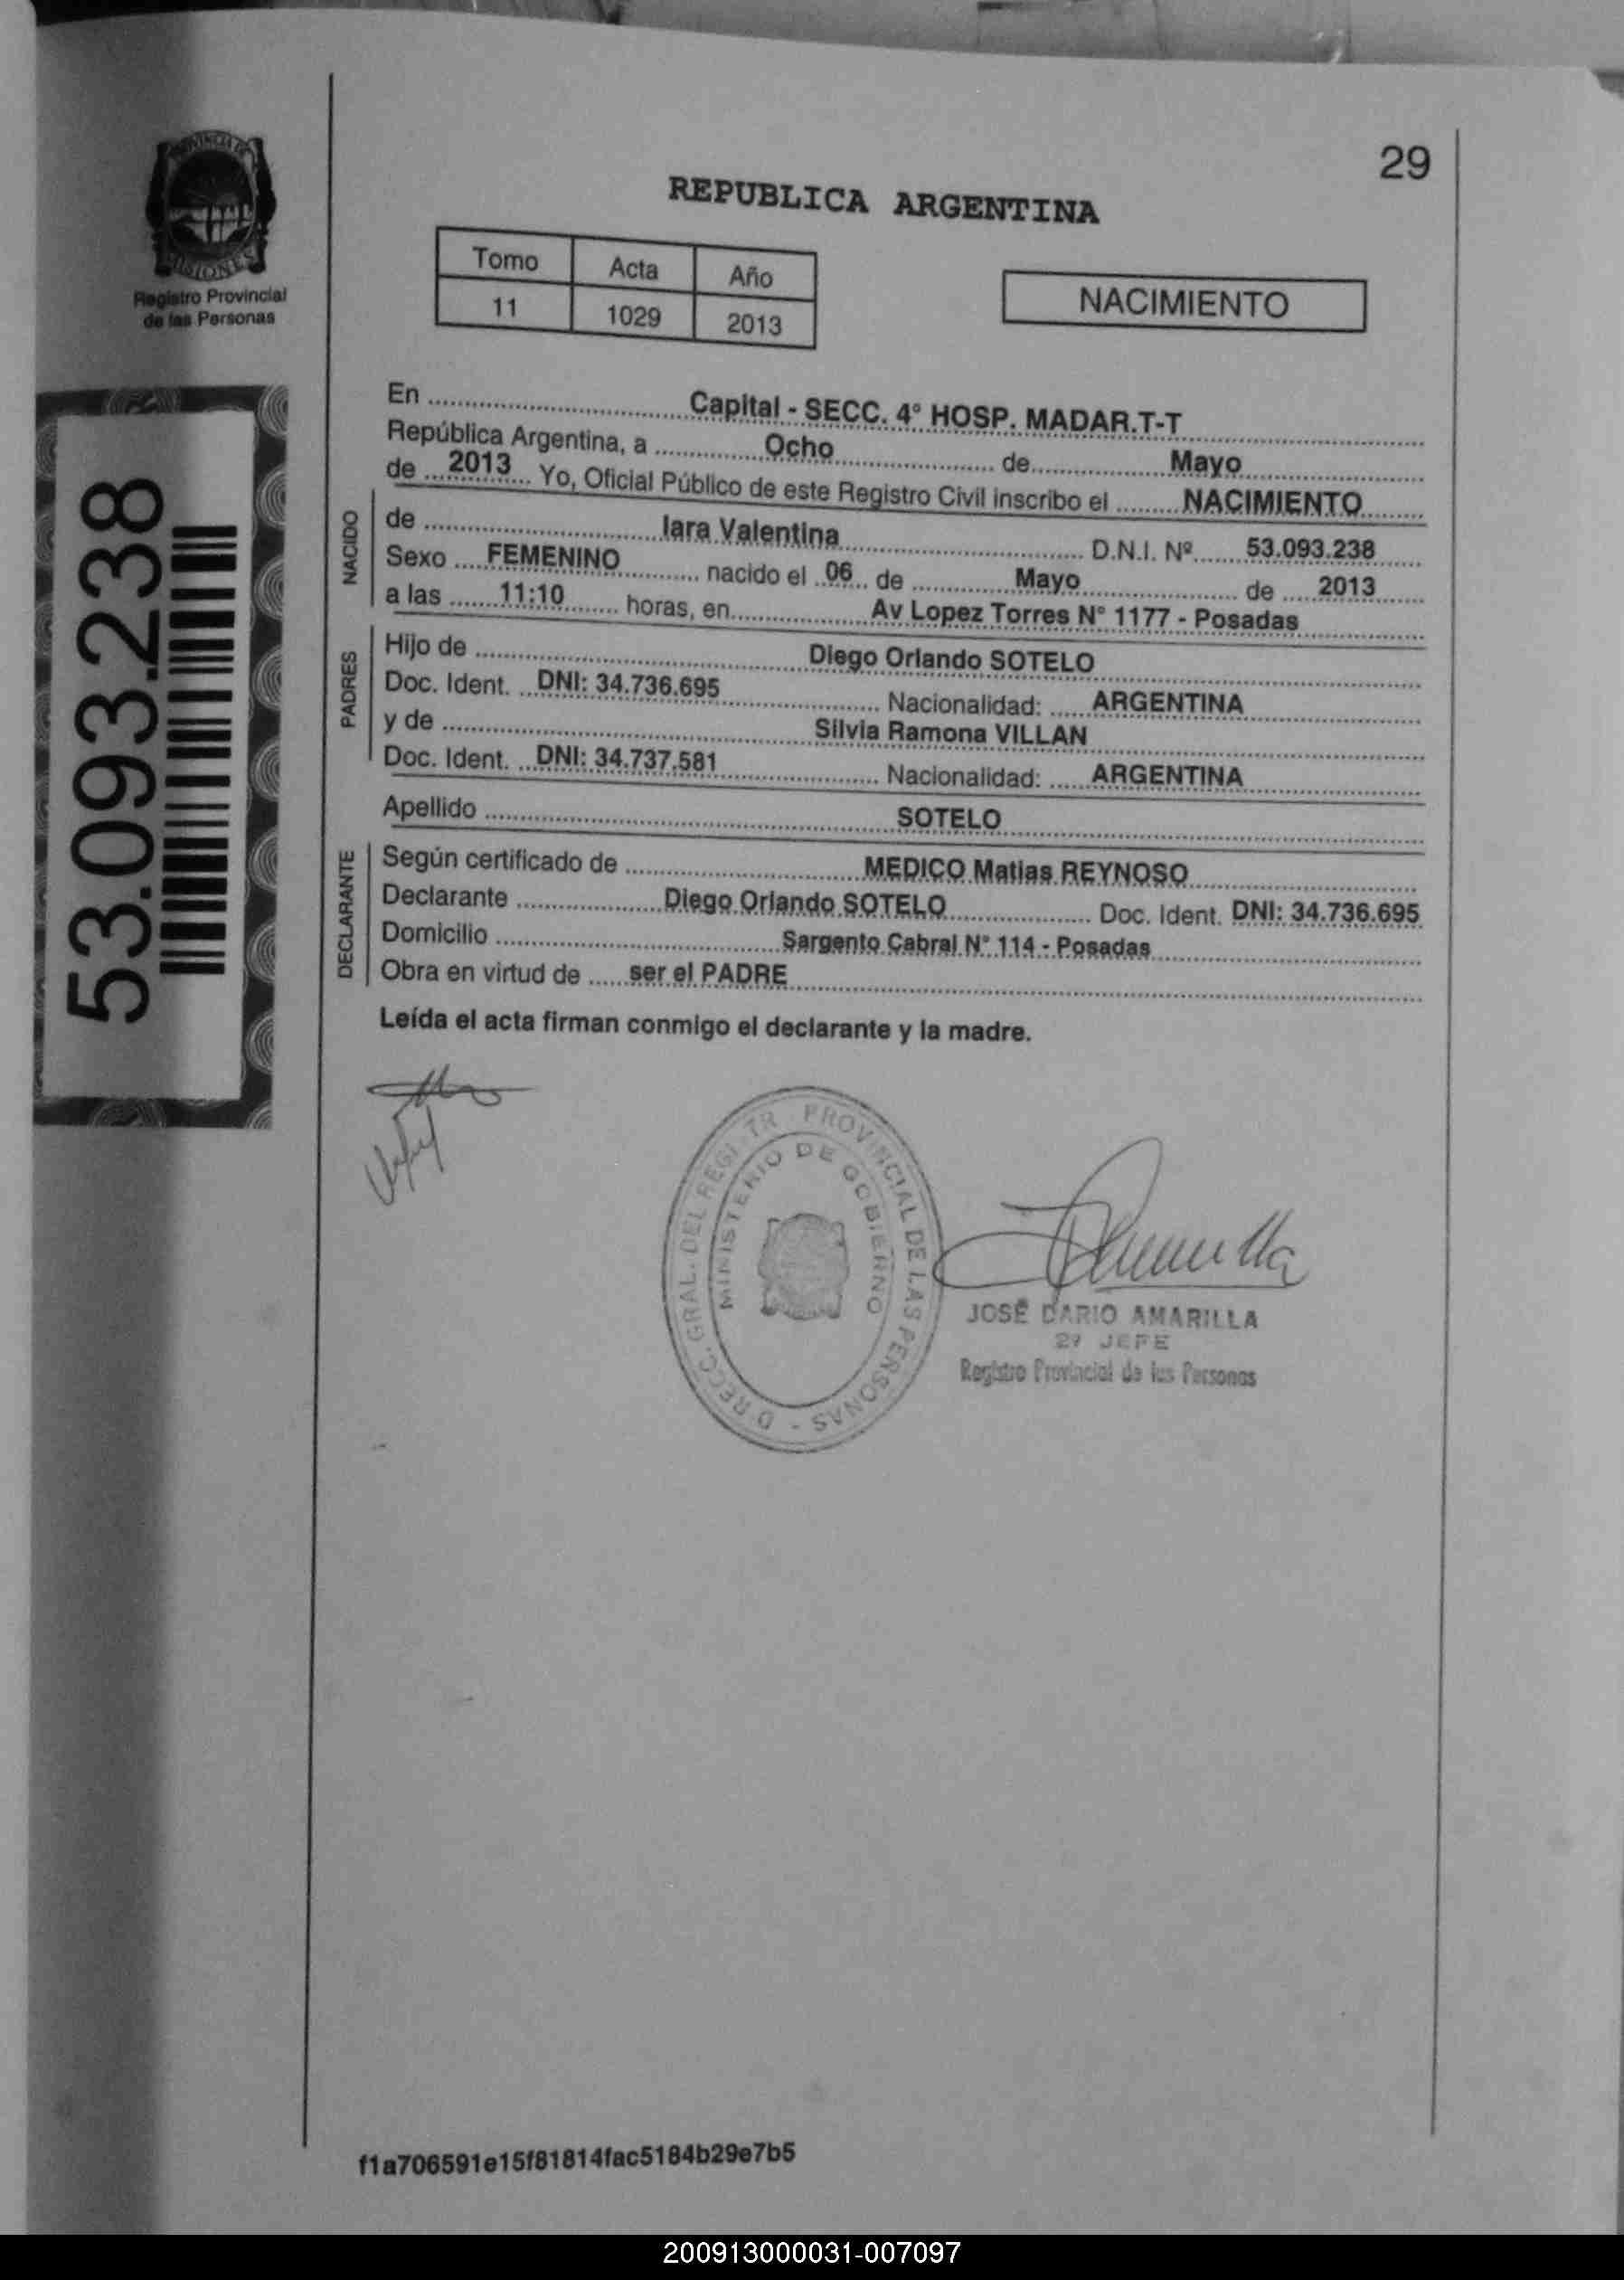 PROVINCIA DE
MISIONES
Registro Provincial
de las Personas
29
REPUBLICA ARGENTINA
Tomo Acta Año
11 1029 2013
NACIMIENTO
53.093.238
En Capital - SECC. 4° HOSP. MADAR.T-T
República Argentina, a Ocho de Mayo
de 2013 Yo, Oficial Público de este Registro Civil inscribo el NACIMIENTO
NACIDO
de Iara Valentina D.N.I. Nº 53.093.238
Sexo FEMENINO nacido el 06 de Mayo de 2013
a las 11:10 horas, en Av Lopez Torres N° 1177 - Posadas
PADRES
Hijo de Diego Orlando SOTELO
Doc. Ident. DNI: 34.736.695 Nacionalidad: ARGENTINA
y de Silvia Ramona VILLAN
Doc. Ident. DNI: 34.737.581 Nacionalidad: ARGENTINA
Apellido SOTELO
DECLARANTE
Según certificado de MEDICO Matias REYNOSO
Declarante Diego Orlando SOTELO Doc. Ident. DNI: 34.736.695
Domicilio Sargento Cabral N° 114 - Posadas
Obra en virtud de ser el PADRE
Leída el acta firman conmigo el declarante y la madre.
PROVINCIAL DE LAS PERSONAS
MINISTERIO DE GOBIERNO
JOSÉ DARIO AMARILLA
2º JEFE
Registro Provincial de las Personas
f1a706591e15f81814fac5184b29e7b5
200913000031-007097